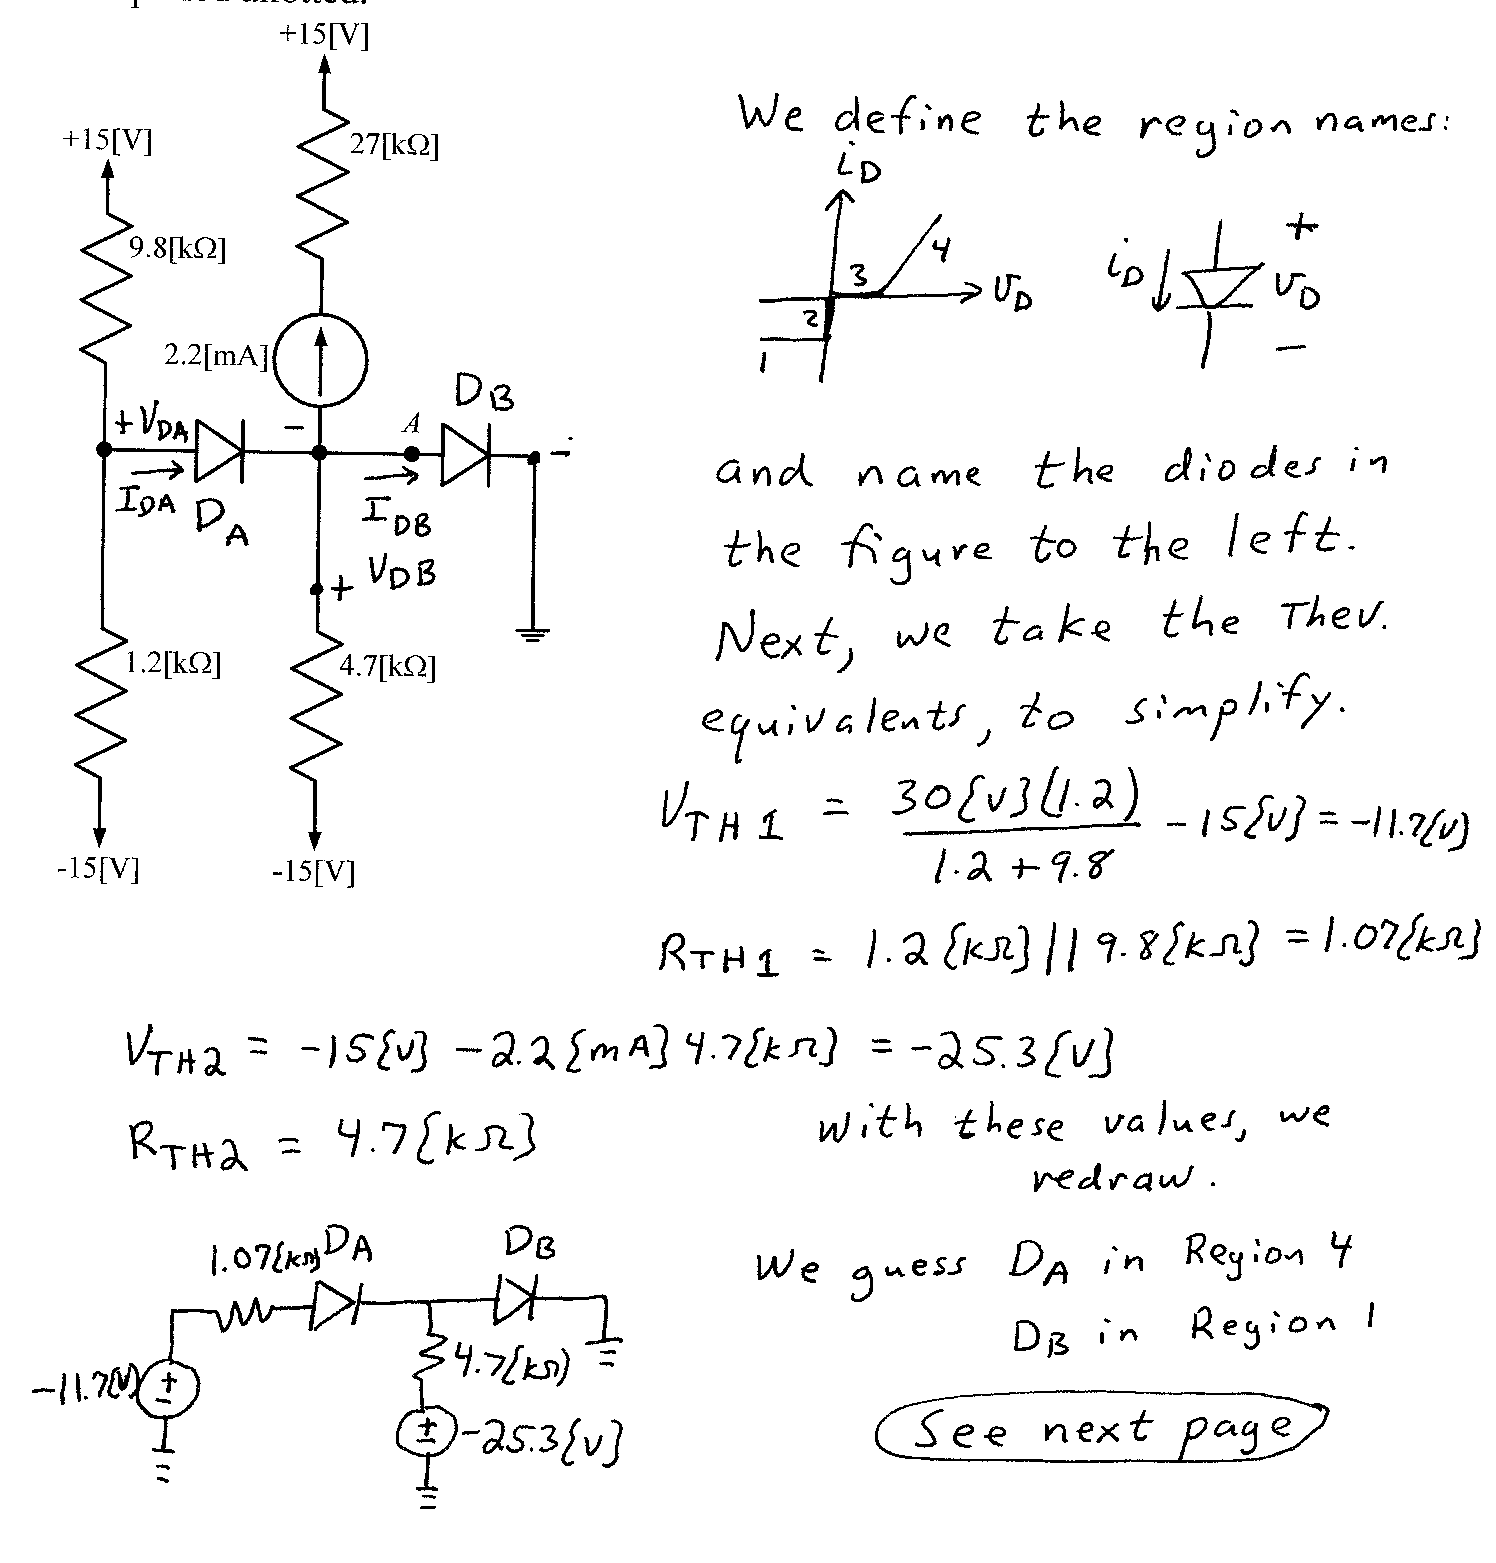 +15[V]
+15[V]
27[kΩ]
9.8[kΩ]
2.2[mA]
+ VDA
-
A
DB
-
IDA
DA
IDB
+ VDB
1.2[kΩ]
4.7[kΩ]
-15[V]
-15[V]
We define the region names:
iD
4
3
vD
2
1
iD
+
vD
-
and name the diodes in
the figure to the left.
Next, we take the Thev.
equivalents, to simplify.
VTH1 = 30{V}(1.2) / 1.2 + 9.8 - 15{V} = -11.7{V}
RTH1 = 1.2{kΩ} || 9.8{kΩ} = 1.07{kΩ}
VTH2 = -15{V} - 2.2{mA} 4.7{kΩ} = -25.3{V}
RTH2 = 4.7{kΩ}
With these values, we
redraw.
1.07{kΩ} DA
DB
4.7{kΩ}
-11.7{V}
+
-
+
-
-25.3{V}
We guess DA in Region 4
DB in Region 1
See next page